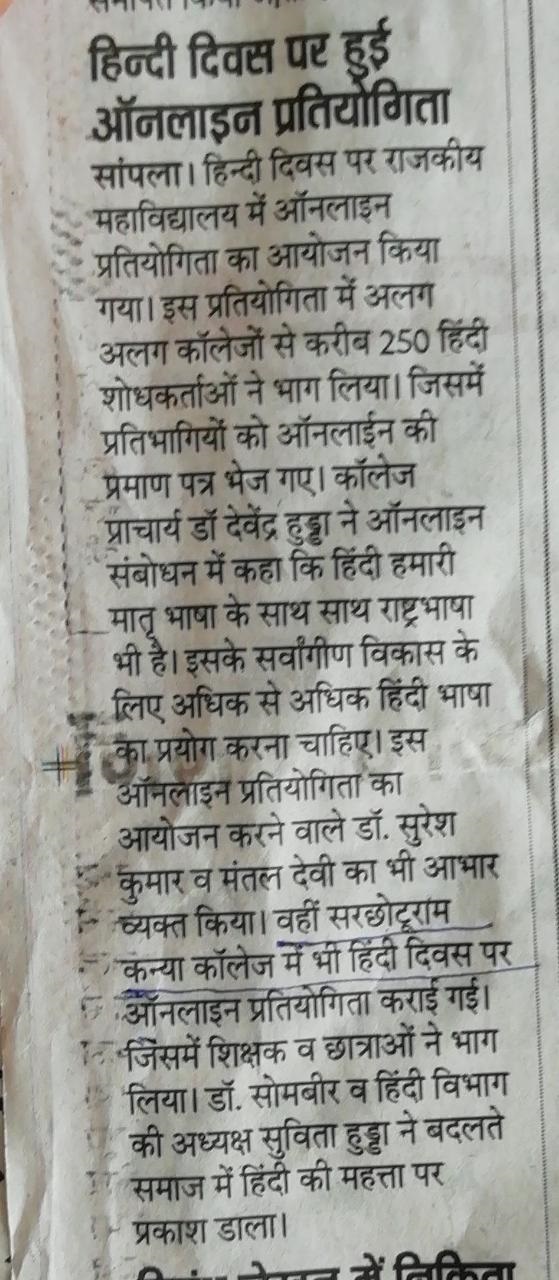 हिन्दी दिवस पर हुई
ऑनलाइन प्रतियोगिता
सांपला। हिन्दी दिवस पर राजकीय
महाविद्यालय में ऑनलाइन
प्रतियोगिता का आयोजन किया
गया। इस प्रतियोगिता में अलग
अलग कॉलेजों से करीब 250 हिंदी
शोधकर्ताओं ने भाग लिया। जिसमें
प्रतिभागियों को ऑनलाईन की
प्रमाण पत्र भेज गए। कॉलेज
प्राचार्य डॉ देवेंद्र हुड्डा ने ऑनलाइन
संबोधन में कहा कि हिंदी हमारी
मातृ भाषा के साथ साथ राष्ट्रभाषा
भी है। इसके सर्वांगीण विकास के
लिए अधिक से अधिक हिंदी भाषा
का प्रयोग करना चाहिए। इस
ऑनलाइन प्रतियोगिता का
आयोजन करने वाले डॉ. सुरेश
कुमार व मंतल देवी का भी आभार
व्यक्त किया। वहीं सरछोटूराम
कन्या कॉलेज में भी हिंदी दिवस पर
ऑनलाइन प्रतियोगिता कराई गई।
जिसमें शिक्षक व छात्राओं ने भाग
लिया। डॉ. सोमबीर व हिंदी विभाग
की अध्यक्ष सुविता हुड्डा ने बदलते
समाज में हिंदी की महत्ता पर
प्रकाश डाला।